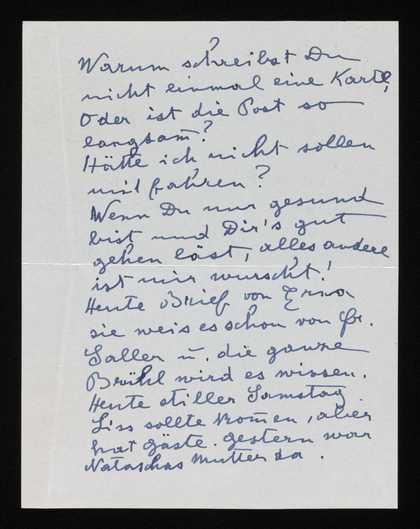 Warum schreibst Du
nicht einmal eine Karte,
Oder ist die Post so
langsam?
Hätte ich nicht sollen
mit fahren?
Wenn Du nur gesund
bist und Dir's gut
gehen läst, alles andere
ist mir wurscht!
Heute Brief von Erna
sie weis es schon von Fr.
Saller u. die ganze
Brühl wird es wissen.
Heute stiller Samstag
Liss sollte kom̄en, aber
hat Gäste. gestern war
Nataschas Mutter da.